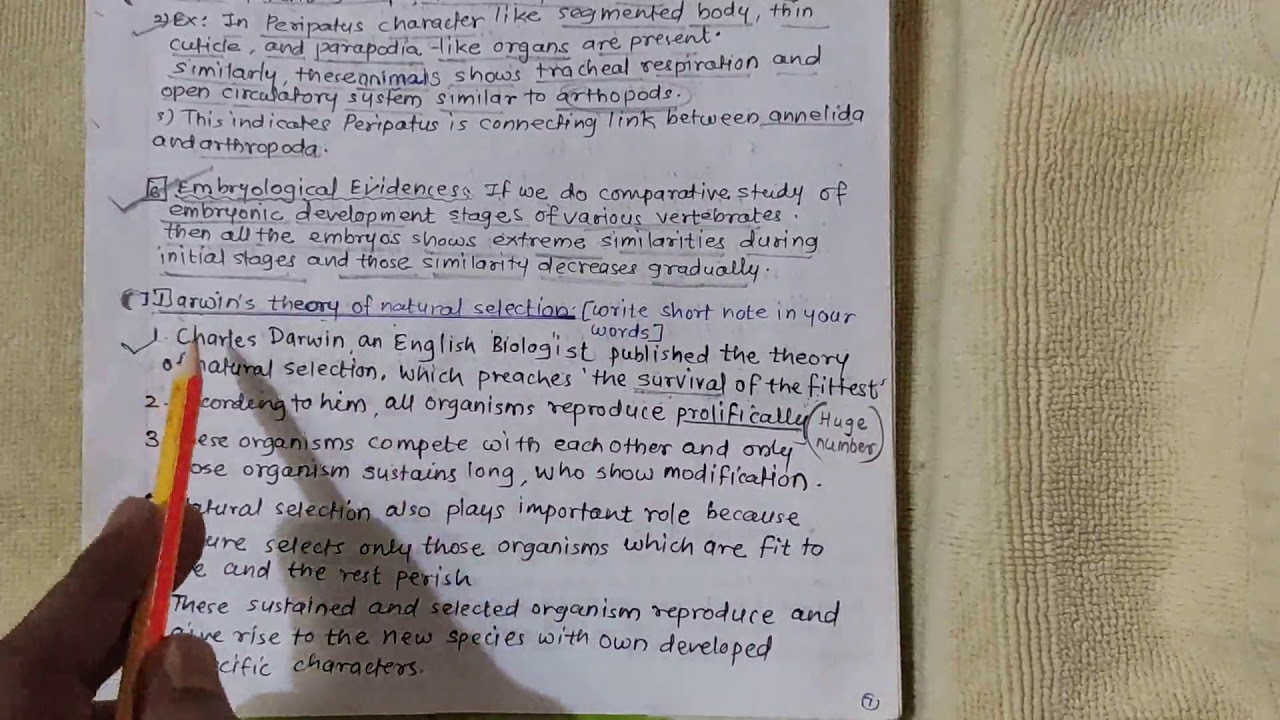 2) Ex: In Peripatus character like segmented body, thin
cuticle, and parapodia-like organs are present.
similarly, these nnimals shows tracheal respiration and
open circulatory system similar to arthopods.
3) This indicates Peripatus is connecting link between annelida
and arthropoda.
6 Embryological Evidences: If we do comparative study of
embryonic development stages of various vertebrates.
then all the embryos shows extreme similarities during
initial stages and those similarity decreases gradually.
Darwin's theory of natural selection: [write short note in your
words]
1. Charles Darwin, an English Biologist published the theory
of natural selection, which preaches 'the survival of the fittest'
2. to him, all organisms reproduce prolifically (Huge
number)
3 organisms compete with each other and only
organism sustains long, who show modification.
selection also plays important role because
selects only those organisms which are fit to
and the rest perish
These sustained and selected organism reproduce and
give rise to the new species with own developed
characters.
7